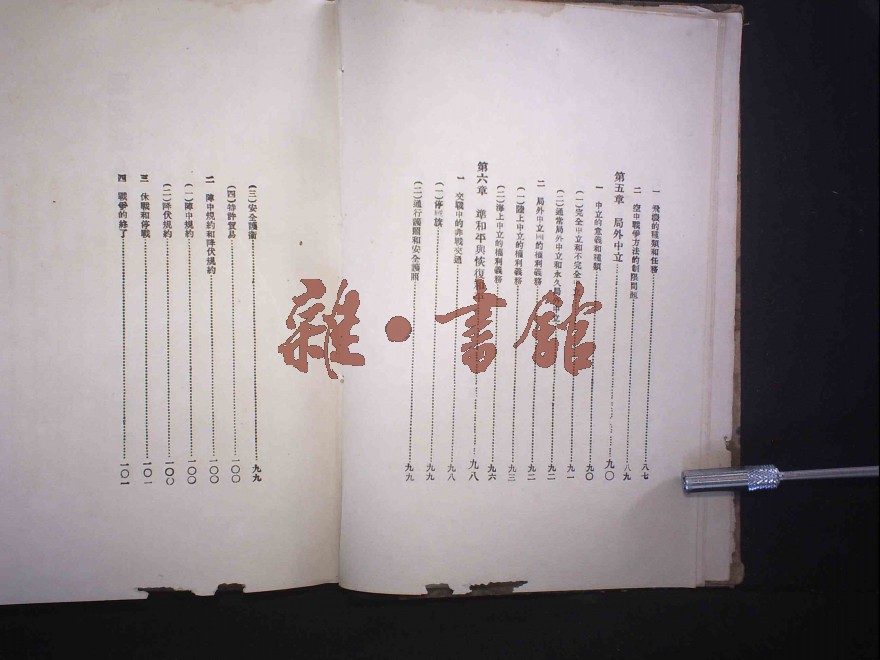 一 飛機的種類和任務 八七
二 空中戰爭方法的制限問題 八九
第五章 局外中立 九〇
一 中立的意義和種類 九〇
(一)完全中立和不完全 九一
(二)通常局外中立和永久局 九二
二 局外中立國的權利義務 九二
(一)陸上中立的權利義務 九三
(二)海上中立的權利義務 九六
第六章 準和平與恢復和平 九八
一 交戰中的非戰交通 九八
(一)停戰旗 九九
(二)通行護照和安全護照 九九
(三)安全護衛 九九
(四)特許貿易 一〇〇
二 陣中規約和降伏規約 一〇〇
(一)陣中規約 一〇〇
(二)降伏規約 一〇〇
三 休戰和停戰 一〇一
四 戰爭的終了 一〇一
雜·書館